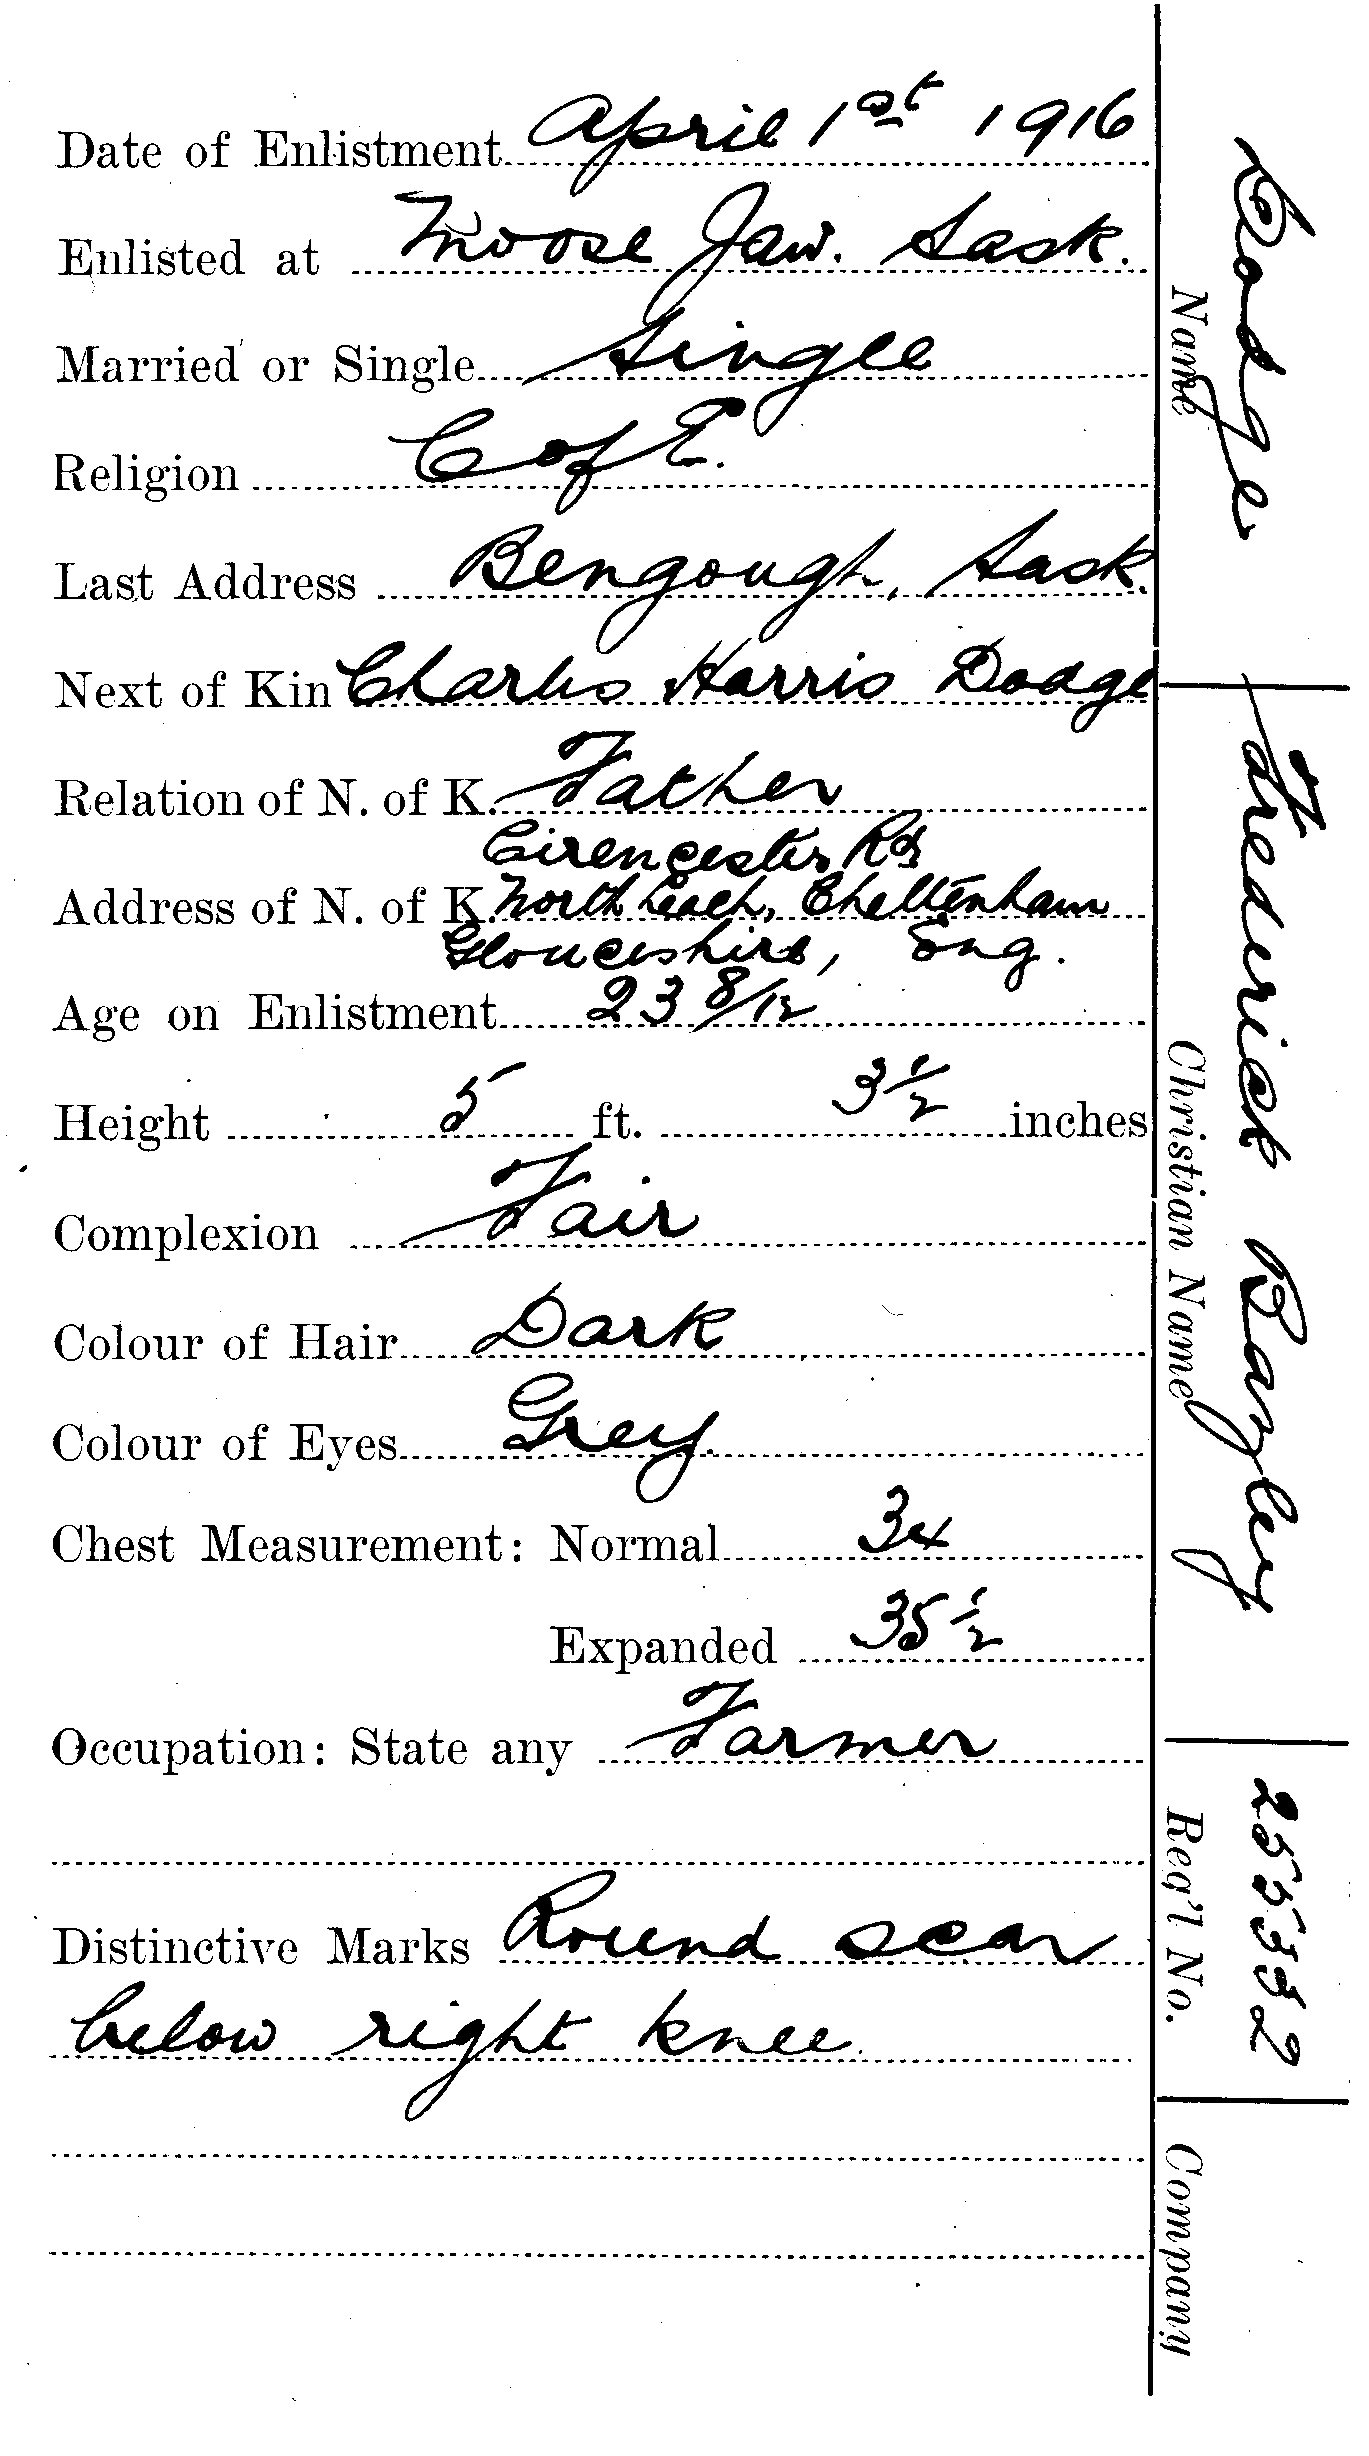 Date of Enlistment April 1st 1916
Enlisted at Moose Jaw. Sask.
Married or Single Single
Religion C of E.
Last Address Bengough, Sask.
Next of Kin Charles Harris Dodge
Relation of N. of K. Father
Cirencester Rd
Address of N. of K. North Leach, Cheltenham
Glouceshire, Eng.
Age on Enlistment 23 8/12
Height 5 ft. 3 1/2 inches
Complexion Fair
Colour of Hair Dark
Colour of Eyes Grey.
Chest Measurement: Normal 34
Expanded 35 1/2
Occupation: State any Farmer
Distinctive Marks Round scar
below right knee.
Dodge Frederick Bazley
Name Christian Name Reg'l No. Company